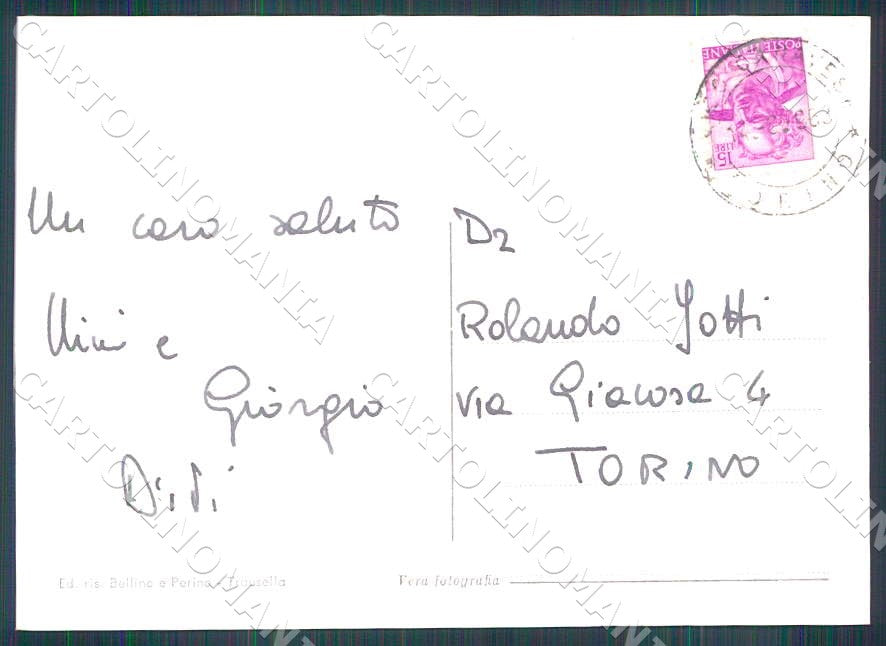 POSTE ITALIANE
15 LIRE
TORINO
Un caro saluto
Mimi e
Giorgio
Didi
Dr
Rolando Jotti
via Giacosa 4
TORINO
Ed. ris. Bellino e Perino - Trausella
Vera fotografia
CARTOLINOMANIA
CARTOLINOMANIA
CARTOLINOMANIA
CARTOLINOMANIA
CARTOLINOMANIA
CARTOLINOMANIA